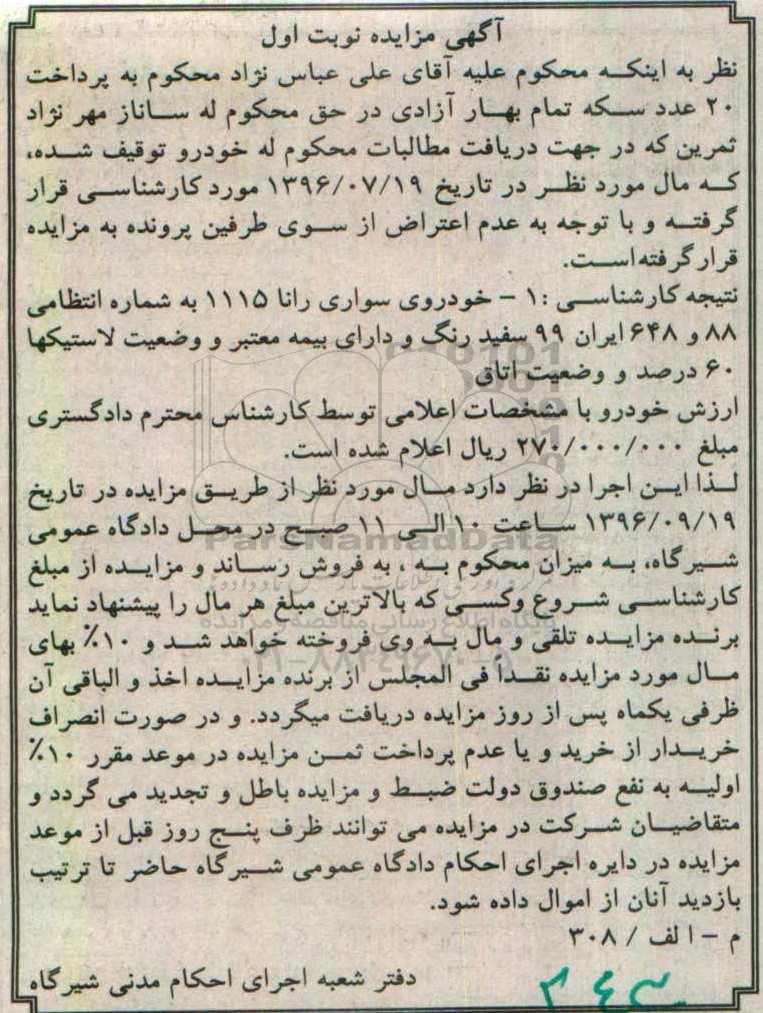 آگهی مزایده نوبت اول
نظر به اینکه محکوم علیه آقای علی عباس نژاد محکوم به پرداخت
۲۰ عدد سکه تمام بهار آزادی در حق محکوم له ساناز مهر نژاد
ثمرین که در جهت دریافت مطالبات محکوم له خودرو توقیف شده،
که مال مورد نظر در تاریخ ۱۳۹۶/۰۷/۱۹ مورد کارشناسی قرار
گرفته و با توجه به عدم اعتراض از سوی طرفین پرونده به مزایده
قرارگرفته‌است.
نتیجه کارشناسی :۱ - خودروی سواری رانا ۱۱۱۵ به شماره انتظامی
۸۸ و ۶۴۸ ایران ۹۹ سفید رنگ و دارای بیمه معتبر و وضعیت لاستیکها
۶۰ درصد و وضعیت اتاق
ارزش خودرو با مشخصات اعلامی توسط کارشناس محترم دادگستری
مبلغ ۲۷۰/۰۰۰/۰۰۰ ریال اعلام شده است.
لذا این اجرا در نظر دارد مال مورد نظر از طریق مزایده در تاریخ
۱۳۹۶/۰۹/۱۹ ساعت ۱۰ الی ۱۱ صبح در محل دادگاه عمومی
شیرگاه، به میزان محکوم به ، به فروش رساند و مزایده از مبلغ
کارشناسی شروع وکسی که بالاترین مبلغ هر مال را پیشنهاد نماید
برنده مزایده تلقی و مال به وی فروخته خواهد شد و ۱۰٪ بهای
مال مورد مزایده نقداً فی المجلس از برنده مزایده اخذ و الباقی آن
ظرفی یکماه پس از روز مزایده دریافت میگردد. و در صورت انصراف
خریدار از خرید و یا عدم پرداخت ثمن مزایده در موعد مقرر ۱۰٪
اولیه به نفع صندوق دولت ضبط و مزایده باطل و تجدید می گردد و
متقاضیان شرکت در مزایده می توانند ظرف پنج روز قبل از موعد
مزایده در دایره اجرای احکام دادگاه عمومی شیرگاه حاضر تا ترتیب
بازدید آنان از اموال داده شود.
م - الف / ۳۰۸
دفتر شعبه اجرای احکام مدنی شیرگاه
ParsNamadData
پایگاه اطلاع رسانی مناقصه و مزایده
۰۲۱-۸۸۳۴۹۶۷۰-۵